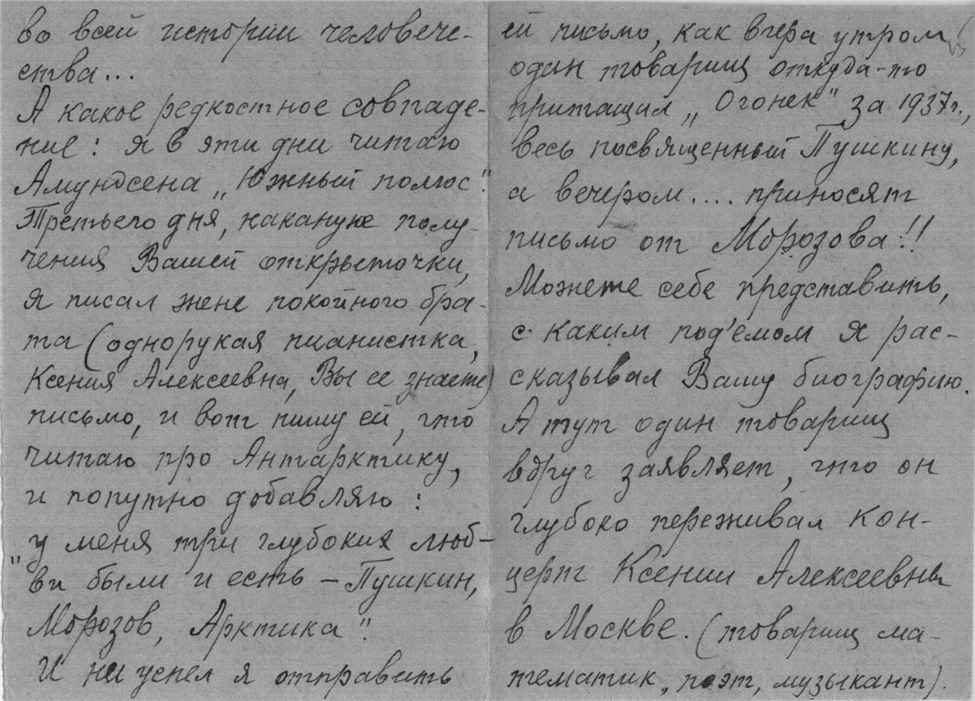 во всей истории человече-
ства...
А какое редкостное совпаде-
ние: я в эти дни читаю
Амундсена „Южный полюс".
Третьего дня, накануне полу-
чения Вашей открыточки,
я писал жене покойного бра-
та (однорукая пианистка,
Ксения Алексеевна, Вы ее знаете)
письмо, и вот пишу ей, что
читаю про Антарктику,
и попутно добавляю:
"у меня три глубоких люб-
ви были и есть – Пушкин,
Морозов, Арктика".
И не успел я отправить
ей письмо, как вчера утром
один товарищ откуда-то
притащил „Огонек" за 1937 г.,
весь посвященный Пушкину,
а вечером.... приносят
письмо от Морозова!!
Можете себе представить,
с каким под'емом я рас-
сказывал Вашу биографию.
А тут один товарищ
вдруг заявляет, что он
глубоко переживал кон-
церт Ксении Алексеевны
в Москве. (товарищ ма-
тематик, поэт, музыкант).